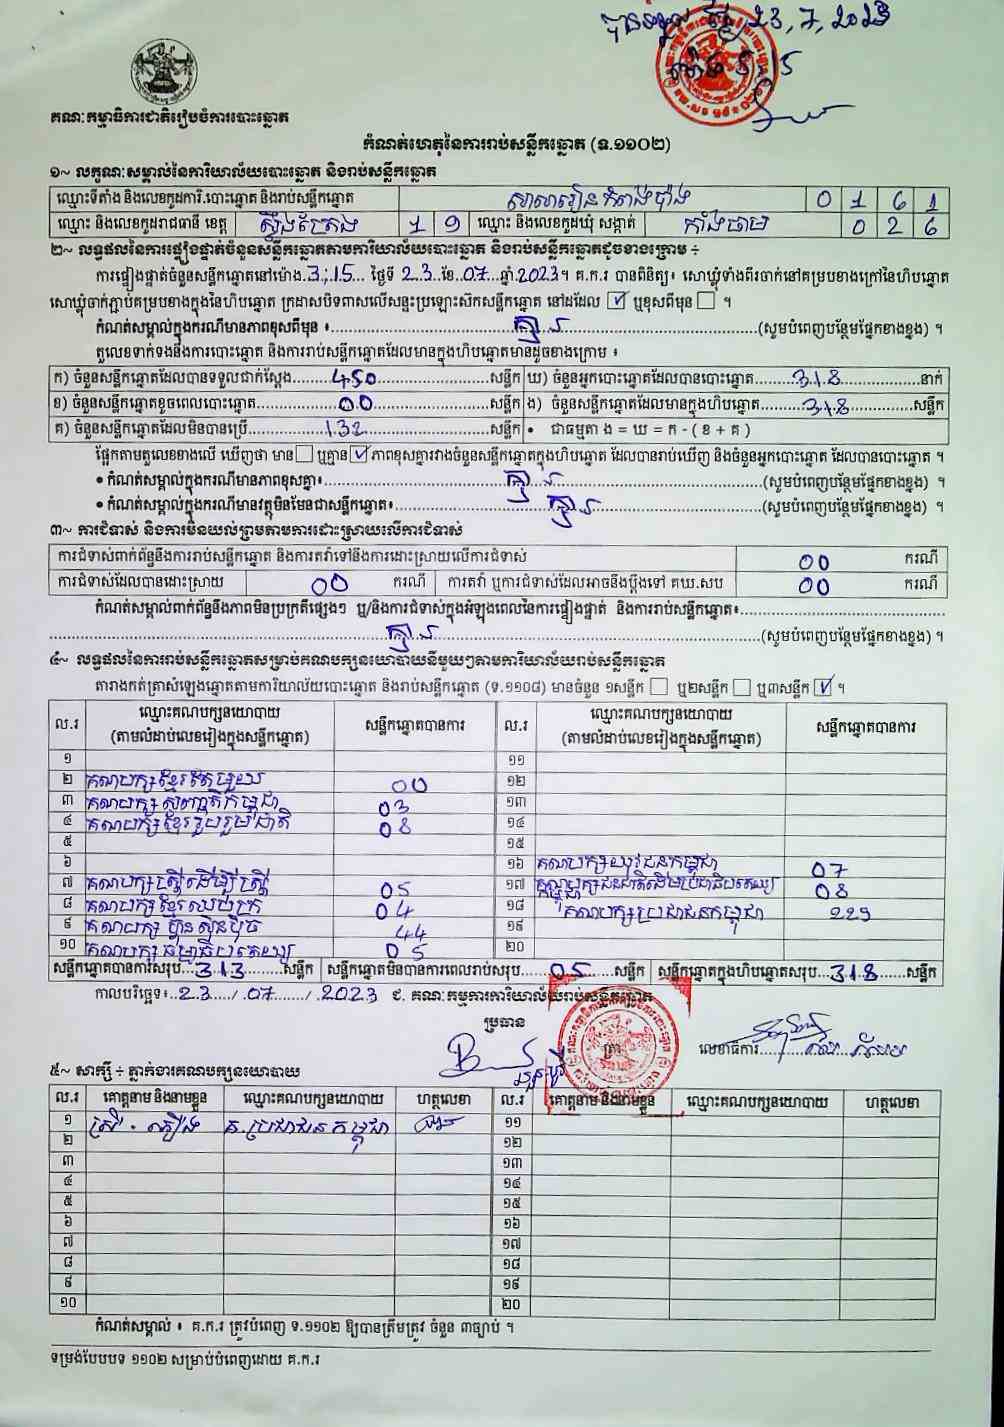 បានទទួល ថ្ងៃ 23, 7, 2023
ម៉ោង 5:15
គណៈកម្មាធិការជាតិរៀបចំការបោះឆ្នោត
កំណត់ហេតុនៃការរាប់សន្លឹកឆ្នោត (ទ.១១០២)
១~ លក្ខណៈសម្គាល់នៃការិយាល័យបោះឆ្នោត និងរាប់សន្លឹកឆ្នោត
ឈ្មោះទីតាំង និងលេខកូដការិ.បោះឆ្នោត និងរាប់សន្លឹកឆ្នោត សាលារៀនកំពង់ប៉ាង 0 1 6 1
ឈ្មោះ និងលេខកូដរាជធានី ខេត្ត ស្ទឹងត្រែង 1 9 ឈ្មោះ និងលេខកូដឃុំ សង្កាត់ កាំងចាម 0 2 6
២~ លទ្ធផលនៃការផ្ទៀងផ្ទាត់ចំនួនសន្លឹកឆ្នោតតាមការិយាល័យបោះឆ្នោត និងរាប់សន្លឹកឆ្នោតដូចខាងក្រោម ÷
ការផ្ទៀងផ្ទាត់ចំនួនសន្លឹកឆ្នោតនៅម៉ោង 3:15 ថ្ងៃទី 23 ខែ 07 ឆ្នាំ 2023។ គ.ក.រ បានពិនិត្យ៖ សោឃ្លុំទាំងពីរចាក់នៅគម្របខាងក្រៅនៃហិបឆ្នោត
សោឃ្លុំចាក់ភ្ជាប់គម្របខាងក្នុងនៃហិបឆ្នោត ក្រដាសបិទពាសលើសន្ទះប្រឡោះស៊កសន្លឹកឆ្នោត នៅដដែល ☑ ឬខុសពីមុន ☐ ។
កំណត់សម្គាល់ក្នុងករណីមានភាពខុសពីមុន ៖ គ្មាន (សូមបំពេញបន្ថែមផ្នែកខាងខ្នង) ។
តួលេខទាក់ទងនឹងការបោះឆ្នោត និងការរាប់សន្លឹកឆ្នោតដែលមានក្នុងហិបឆ្នោតមានដូចខាងក្រោម ៖
ក) ចំនួនសន្លឹកឆ្នោតដែលបានទទួលជាក់ស្តែង 450 សន្លឹក ឃ) ចំនួនអ្នកបោះឆ្នោតដែលបានបោះឆ្នោត 318 នាក់
ខ) ចំនួនសន្លឹកឆ្នោតខូចពេលបោះឆ្នោត 00 សន្លឹក ង) ចំនួនសន្លឹកឆ្នោតដែលមានក្នុងហិបឆ្នោត 318 សន្លឹក
គ) ចំនួនសន្លឹកឆ្នោតដែលមិនបានប្រើ 132 សន្លឹក • ជាធម្មតា ង = ឃ = ក - ( ខ + គ )
ផ្អែកតាមតួលេខខាងលើ ឃើញថា មាន ☐ ឬគ្មាន ☑ ភាពខុសគ្នារវាងចំនួនសន្លឹកឆ្នោតក្នុងហិបឆ្នោត ដែលបានរាប់ឃើញ និងចំនួនអ្នកបោះឆ្នោត ដែលបានបោះឆ្នោត ។
• កំណត់សម្គាល់ក្នុងករណីមានភាពខុសគ្នា៖ គ្មាន (សូមបំពេញបន្ថែមផ្នែកខាងខ្នង) ។
• កំណត់សម្គាល់ក្នុងករណីមានវត្ថុមិនមែនជាសន្លឹកឆ្នោត៖ គ្មាន (សូមបំពេញបន្ថែមផ្នែកខាងខ្នង) ។
៣~ ការជំទាស់ និងការមិនយល់ព្រមតាមការដោះស្រាយលើការជំទាស់
ការជំទាស់ពាក់ព័ន្ធនឹងការរាប់សន្លឹកឆ្នោត និងការតវ៉ាទៅនឹងការដោះស្រាយលើការជំទាស់ 00 ករណី
ការជំទាស់ដែលបានដោះស្រាយ 00 ករណី ការតវ៉ា ឬការជំទាស់ដែលអាចនឹងប្តឹងទៅ គឃ.សប 00 ករណី
កំណត់សម្គាល់ពាក់ព័ន្ធនឹងភាពមិនប្រក្រតីផ្សេងៗ ឬ/និងការជំទាស់ក្នុងអំឡុងពេលនៃការផ្ទៀងផ្ទាត់ និងការរាប់សន្លឹកឆ្នោត៖
គ្មាន (សូមបំពេញបន្ថែមផ្នែកខាងខ្នង) ។
៤~ លទ្ធផលនៃការរាប់សន្លឹកឆ្នោតសម្រាប់គណបក្សនយោបាយនីមួយៗតាមការិយាល័យរាប់សន្លឹកឆ្នោត
តារាងកត់ត្រាសំឡេងឆ្នោតតាមការិយាល័យបោះឆ្នោត និងរាប់សន្លឹកឆ្នោត (ទ.១១០៨) មានចំនួន ១សន្លឹក ☐ ឬ២សន្លឹក ☐ ឬ៣សន្លឹក ☑ ។
ល.រ ឈ្មោះគណបក្សនយោបាយ (តាមលំដាប់លេខរៀងក្នុងសន្លឹកឆ្នោត) សន្លឹកឆ្នោតបានការ ល.រ ឈ្មោះគណបក្សនយោបាយ (តាមលំដាប់លេខរៀងក្នុងសន្លឹកឆ្នោត) សន្លឹកឆ្នោតបានការ
១ ១១
២ គណបក្សខ្មែរតែមួយ 00 ១២
៣ គណបក្ស សញ្ជាតិកម្ពុជា 03 ១៣
៤ គណបក្សខ្មែររួបរួមជាតិ 08 ១៤
៥ ១៥
៦ ១៦ គណបក្សយុវជនកម្ពុជា 07
៧ គណបក្សស្ត្រីដើម្បីស្ត្រី 05 ១៧ គណបក្សជនជាតិដើមប្រជាធិបតេយ្យកម្ពុជា 08
៨ គណបក្សខ្មែរឈប់ក្រ 04 ១៨ គណបក្សប្រជាជនកម្ពុជា 229
៩ គណបក្ស ហ្វ៊ុនស៊ិនប៉ិច 44 ១៩
១០ គណបក្ស ធម្មាធិបតេយ្យ 05 ២០
សន្លឹកឆ្នោតបានការសរុប 313 សន្លឹក សន្លឹកឆ្នោតមិនបានការពេលរាប់សរុប 05 សន្លឹក សន្លឹកឆ្នោតក្នុងហិបឆ្នោតសរុប 318 សន្លឹក
កាលបរិច្ឆេទ៖ 23 / 07 / 2023 ជ. គណៈកម្មការការិយាល័យរាប់សន្លឹកឆ្នោត
ប្រធាន
លេខាធិការ
៥~ សាក្សី ÷ ភ្នាក់ងារគណបក្សនយោបាយ
ល.រ គោត្តនាម និងនាមខ្លួន ឈ្មោះគណបក្សនយោបាយ ហត្ថលេខា ល.រ គោត្តនាម និងនាមខ្លួន ឈ្មោះគណបក្សនយោបាយ ហត្ថលេខា
១ គ.ប្រជាជនកម្ពុជា ១១
២ ១២
៣ ១៣
៤ ១៤
៥ ១៥
៦ ១៦
៧ ១៧
៨ ១៨
៩ ១៩
១០ ២០
កំណត់សម្គាល់ ៖ គ.ក.រ ត្រូវបំពេញ ទ.១១០២ ឱ្យបានត្រឹមត្រូវ ចំនួន ៣ច្បាប់ ។
ទម្រង់បែបបទ ១១០២ សម្រាប់បំពេញដោយ គ.ក.រ